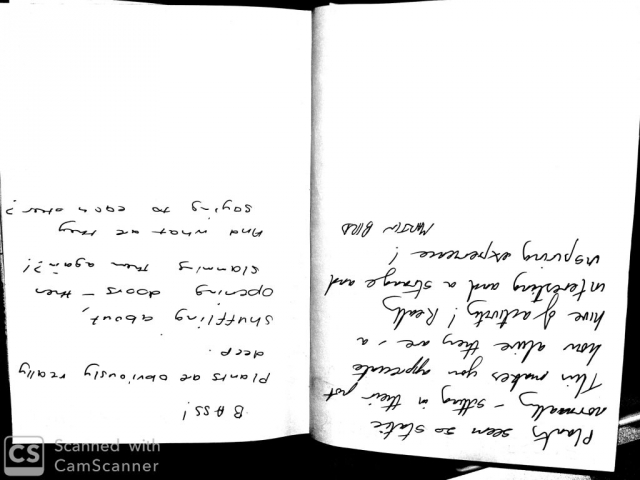 Plants seem so static
normally – sitting in their pot
This makes you appreciate
how alive they are – a
hive of activity! Really
interesting and a strange and
inspiring experience!
MARTIN BIRD
BASS!
Plants are obviously really
deep.
Shuffling about,
opening doors – then
slamming them again?!
And what are they
saying to each other?
CS Scanned with
CamScanner